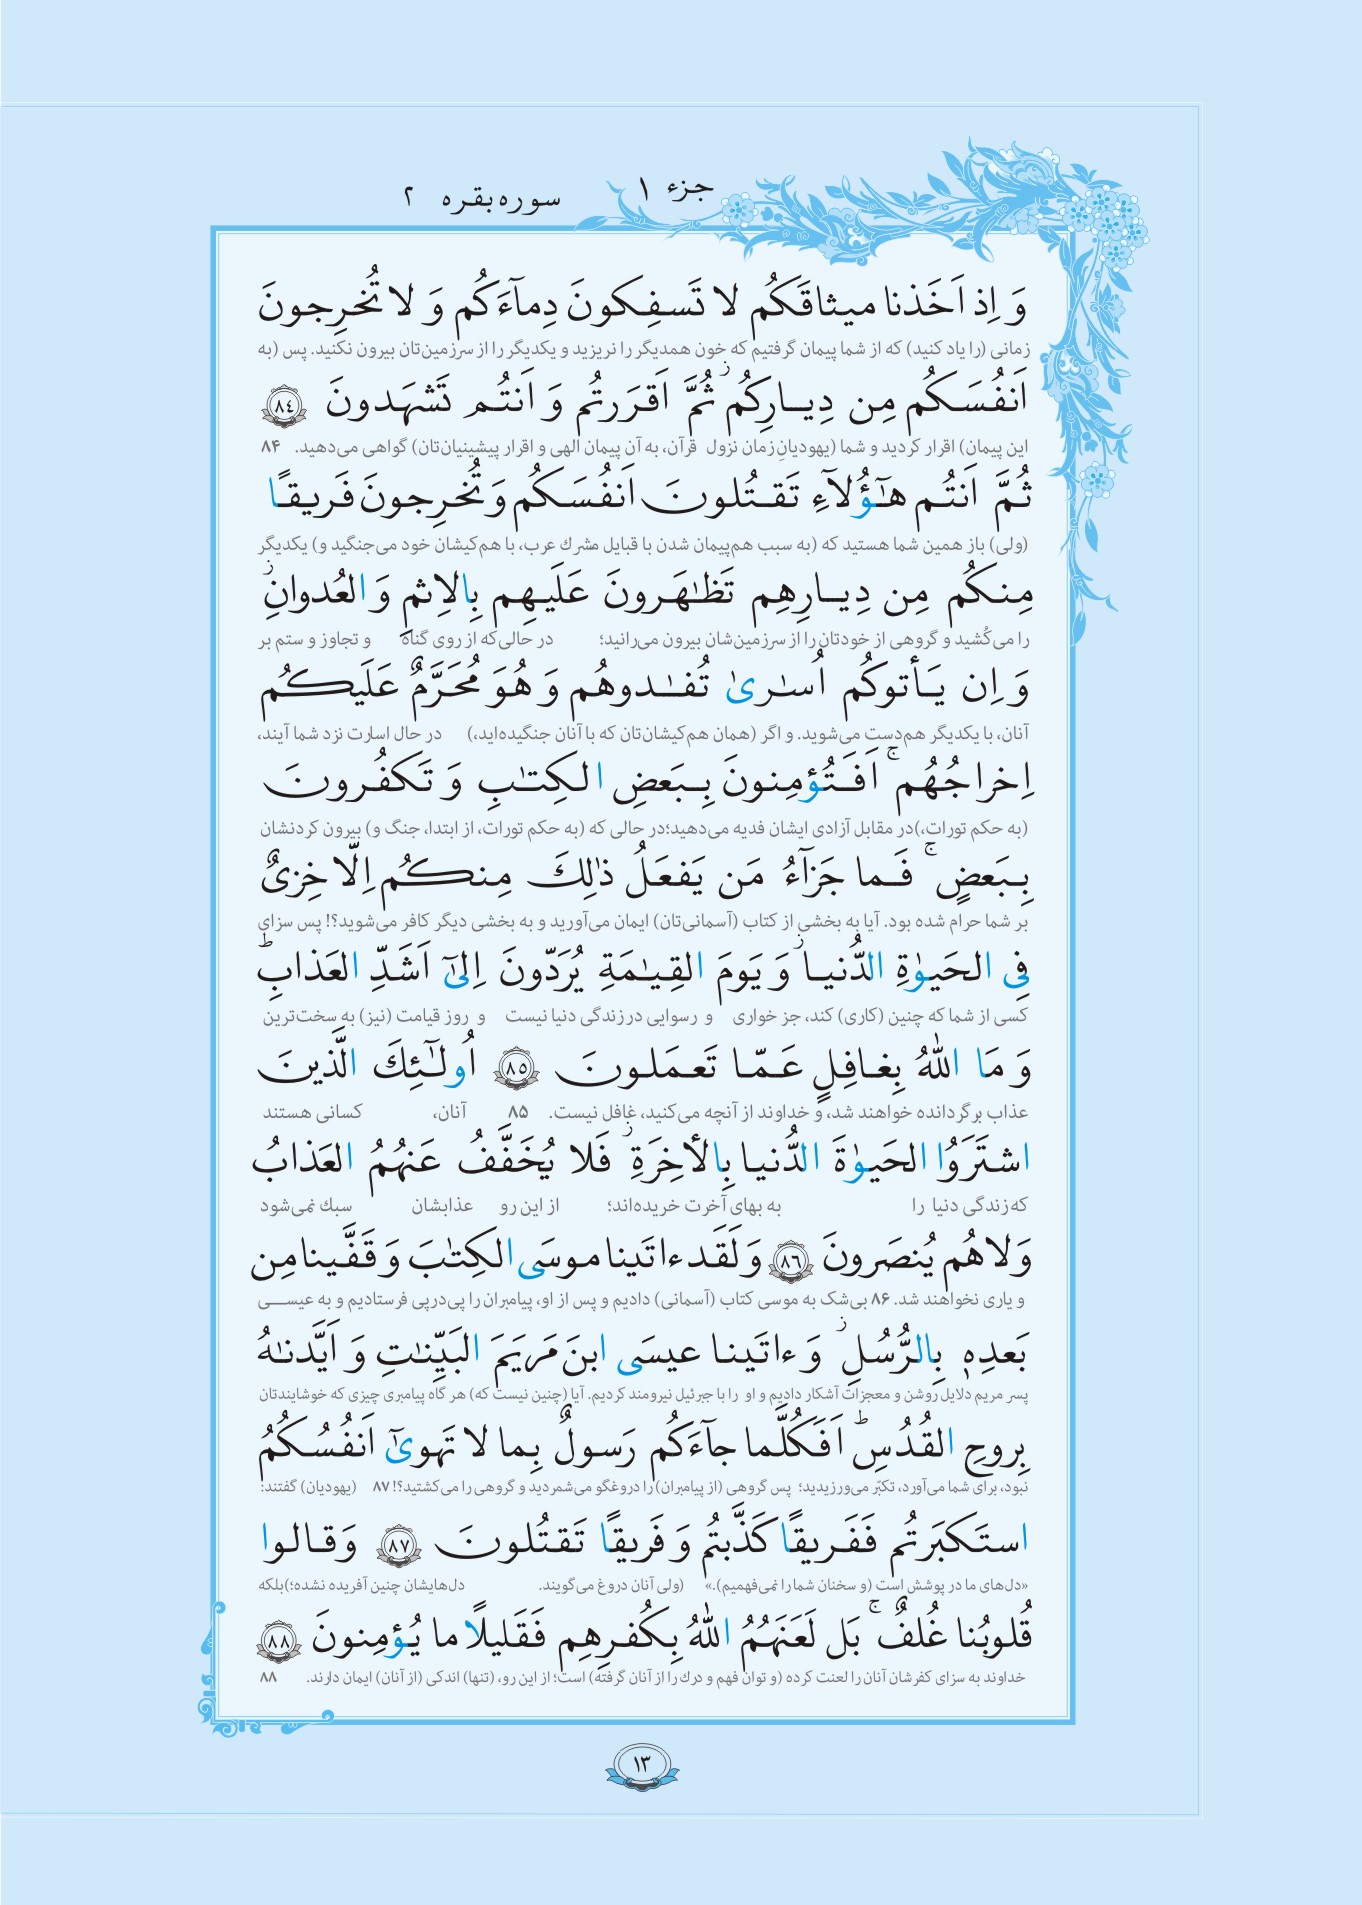 جزء ۱ سوره بقره ۲
وَ اِذ اَخَذنا ميثاقَكُم لا تَسفِكونَ دِمآءَكُم وَ لا تُخرِجونَ
زمانی (را یاد کنید) که از شما پیمان گرفتیم که خون همدیگر را نریزید و یکدیگر را از سرزمین‌تان بیرون نکنید. پس (به
اَنفُسَكُم مِن دِيارِكُم ز ثُمَّ اَقرَرتُم وَ اَنتُم تَشهَدونَ ٨٤
این پیمان) اقرار کردید و شما (یهودیانِ زمان نزول قرآن، به آن پیمان الهی و اقرار پیشینیان‌تان) گواهی می‌دهید. ۸۴
ثُمَّ اَنتُم هٰٓؤُلآءِ تَقتُلونَ اَنفُسَكُم وَ تُخرِجونَ فَريقًا
(ولی) باز همین شما هستید که (به سبب هم‌پیمان شدن با قبایل مشرك عرب، با هم‌کیشان خود می‌جنگید و) یکدیگر
مِنكُم مِن دِيارِهِم تَظٰهَرونَ عَلَيهِم بِالاِثمِ وَ العُدوانِ ز
را می‌کُشید و گروهی از خودتان را از سرزمین‌شان بیرون می‌رانید؛ در حالی‌که از روی گناه و تجاوز و ستم بر
وَ اِن يَأتوكُم اُسٰرىٰ تُفٰدوهُم وَ هُوَ مُحَرَّمٌ عَلَيكُم
آنان، با یکدیگر هم‌دست می‌شوید. و اگر (همان هم‌کیشان‌تان که با آنان جنگیده‌اید،) در حال اسارت نزد شما آیند،
اِخراجُهُم ج اَفَتُؤمِنونَ بِبَعضِ الكِتٰبِ وَ تَكفُرونَ
(به حکم تورات،)در مقابل آزادی ایشان فدیه می‌دهید؛در حالی که (به حکم تورات، از ابتدا، جنگ و) بیرون کردنشان
بِبَعضٍ ج فَما جَزآءُ مَن يَفعَلُ ذٰلِكَ مِنكُم اِلّا خِزىٌ
بر شما حرام شده بود. آیا به بخشی از کتاب (آسمانی‌تان) ایمان می‌آورید و به بخشی دیگر کافر می‌شوید؟! پس سزای
فِى الحَيوٰةِ الدُّنيا ز وَ يَومَ القِيٰمَةِ يُرَدّونَ اِلىٰٓ اَشَدِّ العَذابِ ط
کسی از شما که چنین (کاری) کند، جز خواری و رسوایی در زندگی دنیا نیست و روز قیامت (نیز) به سخت‌ترین
وَ مَا اللّٰهُ بِغافِلٍ عَمّا تَعمَلونَ ٨٥ اُولٰٓئِكَ الَّذينَ
عذاب برگردانده خواهند شد، و خداوند از آنچه می‌کنید، غافل نیست. ۸۵ آنان، کسانی هستند
اشتَرَوُا الحَيوٰةَ الدُّنيا بِالأخِرَةِ ز فَلا يُخَفَّفُ عَنهُمُ العَذابُ
که زندگی دنیا را به بهای آخرت خریده‌اند؛ از این رو عذابشان سبك نمی‌شود
وَ لا هُم يُنصَرونَ ٨٦ وَ لَقَد ءاتَينا موسَى الكِتٰبَ وَ قَفَّينا مِن
و یاری نخواهند شد. ۸۶ بی‌شک به موسی کتاب (آسمانی) دادیم و پس از او، پیامبران را پی‌درپی فرستادیم و به عیسی
بَعدِهٖ بِالرُّسُلِ ز وَ ءاتَينا عيسَى ابنَ مَريَمَ البَيِّنٰتِ وَ اَيَّدنٰهُ
پسر مریم دلایل روشن و معجزات آشکار دادیم و او را با جبرئیل نیرومند کردیم. آیا (چنین نیست که) هر گاه پیامبری چیزی که خوشایندتان
بِروحِ القُدُسِ ط اَفَكُلَّما جآءَكُم رَسولٌ بِما لا تَهوىٰٓ اَنفُسُكُمُ
نبود، برای شما می‌آورد، تکبّر می‌ورزیدید؛ پس گروهی (از پیامبران)را دروغگو می‌شمردید و گروهی را می‌کشتید؟! ۸۷ (یهودیان) گفتند:
استَكبَرتُم فَفَريقًا كَذَّبتُم وَ فَريقًا تَقتُلونَ ٨٧ وَ قالوا
«دل‌های ما در پوشش است (و سخنان شما را نمی‌فهمیم).» (ولی آنان دروغ می‌گویند. دل‌هایشان چنین آفریده نشده؛)بلکه
قُلوبُنا غُلفٌ ج بَل لَعَنَهُمُ اللّٰهُ بِكُفرِهِم فَقَليلًا ما يُؤمِنونَ ٨٨
خداوند به سزای کفرشان آنان را لعنت کرده (و توان فهم و درك را از آنان گرفته) است؛ از این رو، (تنها) اندکی (از آنان) ایمان دارند. ۸۸
۱۳